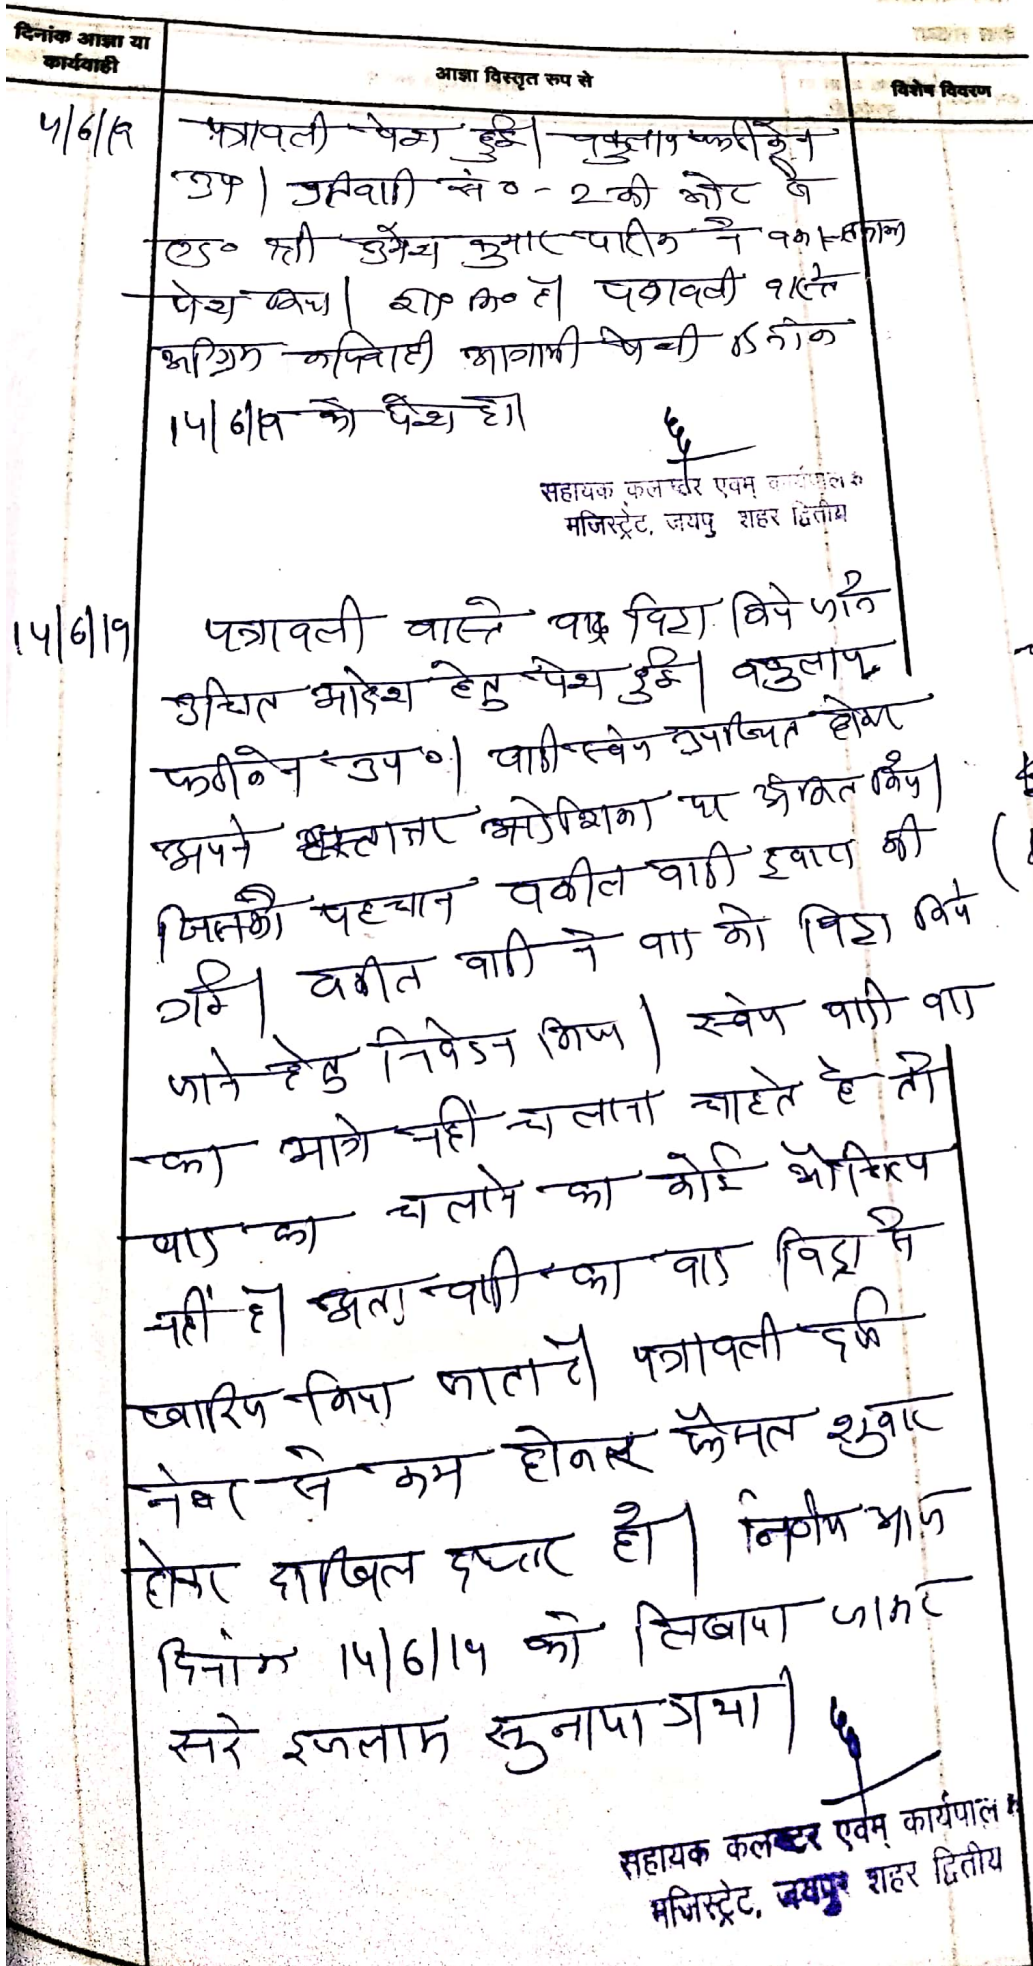 दिनांक आज्ञा या
कार्यवाही
आज्ञा विस्तृत रूप से
विशेष विवरण
पत्रावली पेश हुई। वकुलाय फरीकेन
उप। प्रतिवादी सं० - 2 की ओर से
एड० श्री कुमार पारीक ने
पेश किया। शा० मि० हो। पत्रावली वास्ते
अग्रिम कार्यवाही आगामी पेशी दिनांक
14/6/19 को पेश हो।
सहायक कलक्टर एवम् कार्यपालक
मजिस्ट्रेट, जयपुर शहर द्वितीय
14/6/19
पत्रावली वास्ते वाद विड्रा किये जाने
उचित आदेश हेतु पेश हुई। वकुलाय
फरीकेन उप०। वादी स्वयं उपस्थित होकर
अपने हस्ताक्षर आदेशिका पर अंकित किये।
जिसकी पहचान वकील वादी द्वारा की
गई। वकील वादी ने वाद को विड्रा किये
जाने हेतु निवेदन किया। स्वयं वादी वाद
का आगे नहीं चलाना चाहते है तो
वाद का चलाने का कोई औचित्य
नहीं है। अतः वादी का वाद विड्रा में
खारिज किया जाता है। पत्रावली दर्ज
नंबर से कम होकर फैसल शुमार
होकर दाखिल दफ्तर हो। निर्णय आज
दिनांक 14/6/19 को लिखाया जाकर
सरे इजलास सुनाया गया।
सहायक कलक्टर एवम् कार्यपालक
मजिस्ट्रेट, जयपुर शहर द्वितीय